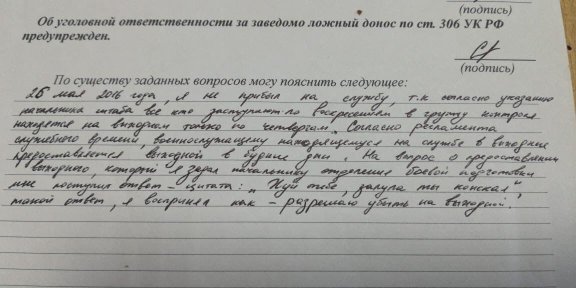 (подпись)
Об уголовной ответственности за заведомо ложный донос по ст. 306 УК РФ
предупрежден.
(подпись)
По существу заданных вопросов могу пояснить следующее:
26 мая 2016 года, я не прибыл на службу, т.к согласно указанию
начальника штаба все кто заступают по воскресениям в группу контроля
находятся на выходном только по четвергам. Согласно регламента
служебного времени, военнослужащему находящемуся на службе в выходные
предоставляется выходной в будние дни. На вопрос о предоставлении
выходного, который я задал начальнику отделения боевой подготовки
мне поступил ответ - цитата: „Хуй тебе, залупа ты конская"
такой ответ, я воспринял как - разрешаю убыть на выходной.